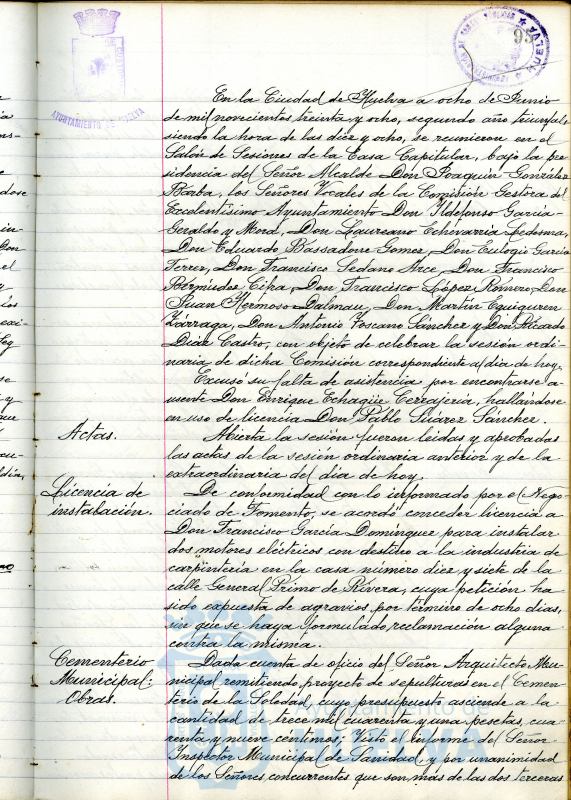 95
AYUNTAMIENTO DE HUELVA
HUELVA
En la Ciudad de Huelva a ocho de Junio
de mil novecientos treinta y ocho, segundo año triunfal
siendo la hora de las diez y ocho, se reunieron en el
Salón de Sesiones de la Casa Capitular, bajo la pre
sidencia del Señor Alcalde Don Joaquín González
Barba, los Señores Vocales de la Comisión Gestora del
Excelentísimo Ayuntamiento Don Ildefonso García-
Geraldo y Mora, Don Laureano Echevarría Ledesma,
Don Eduardo Bassadone Gomez, Don Eulogio García
Terrer, Don Francisco Sedano Arce, Don Francisco
Bermúdez Ciha, Don Francisco López Romero, Don
Juan Hermoso Dalmau, Don Martín Eguiguren
Lárraga, Don Antonio Toscano Sánchez y Don Ricardo
Diáz Castro, con objeto de celebrar la sesión ordi-
naria de dicha Comisión correspondiente al dia de hoy.
Excusó su falta de asistencia por encontrarse a-
usente Don Enrique Echagüe Cerrajería, hallándose
en uso de licencia Don Pablo Suárez Sánchez.
Actas.
Abierta la sesión fueron leidas y aprobadas
las actas de la sesión ordinaria anterior y de la
extraordinaria del dia de hoy.
Licencia de
instalación.
De conformidad con lo informado por el Nego
ciado de Fomento, se acordó conceder licencia a
Don Francisco García Domínguez para instalar
dos motores eléctricos con destino a la industria de
carpintería en la casa número diez y siete de la
calle General Primo de Rivera, cuya petición ha
sido expuesta de agravios por término de ocho dias,
sin que se haya formulado reclamación alguna
contra la misma.
Cementerio
Municipal:
Obras.
Dada cuenta de oficio del Señor Arquitecto Mu-
nicipal remitiendo proyecto de sepulturas en el Cemen-
terio de la Soledad, cuyo presupuesto asciende a la
cantidad de trece mil cuarenta y una pesetas, cua-
renta y nueve céntimos: Visto el informe del Señor
Inspector Municipal de Sanidad, y por unanimidad
de los Señores concurrentes que son mas de las dos terceras